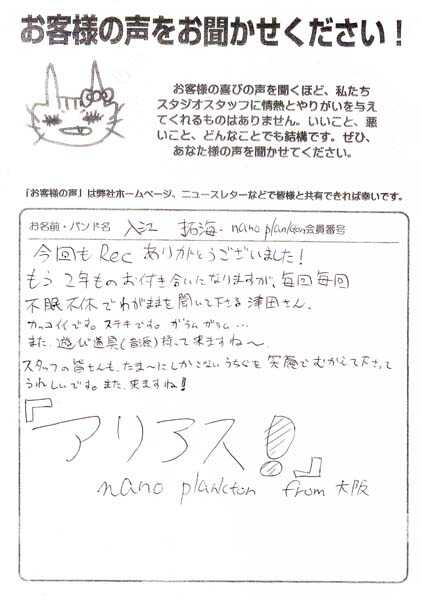 お客様の声をお聞かせください！
お客様の喜びの声を聞くほど、私たち
スタジオスタッフに情熱とやりがいを与え
てくれるものはありません。いいこと、悪
いこと、どんなことでも結構です。ぜひ、
あなた様の声を聞かせてください。
「お客様の声」は弊社ホームページ、ニュースレターなどで皆様と共有できれば幸いです。
お名前・バンド名 入江 拓海・nano plankton 会員番号
今回もRecありがとうございました！
もう2年ものお付き合いになりますが、毎回毎回
不眠不休でわがままを聞いて下さる津田さん。
カッコイイです。ステキです。ガラムガラム…
また、遊び道具(音源)持って来ますね〜。
スタッフの皆さんも、たま〜にしかこないうちらを笑顔でむかえて下さって
うれしいです。また、来ますね！
『アリアス！』
nano plankton from 大阪